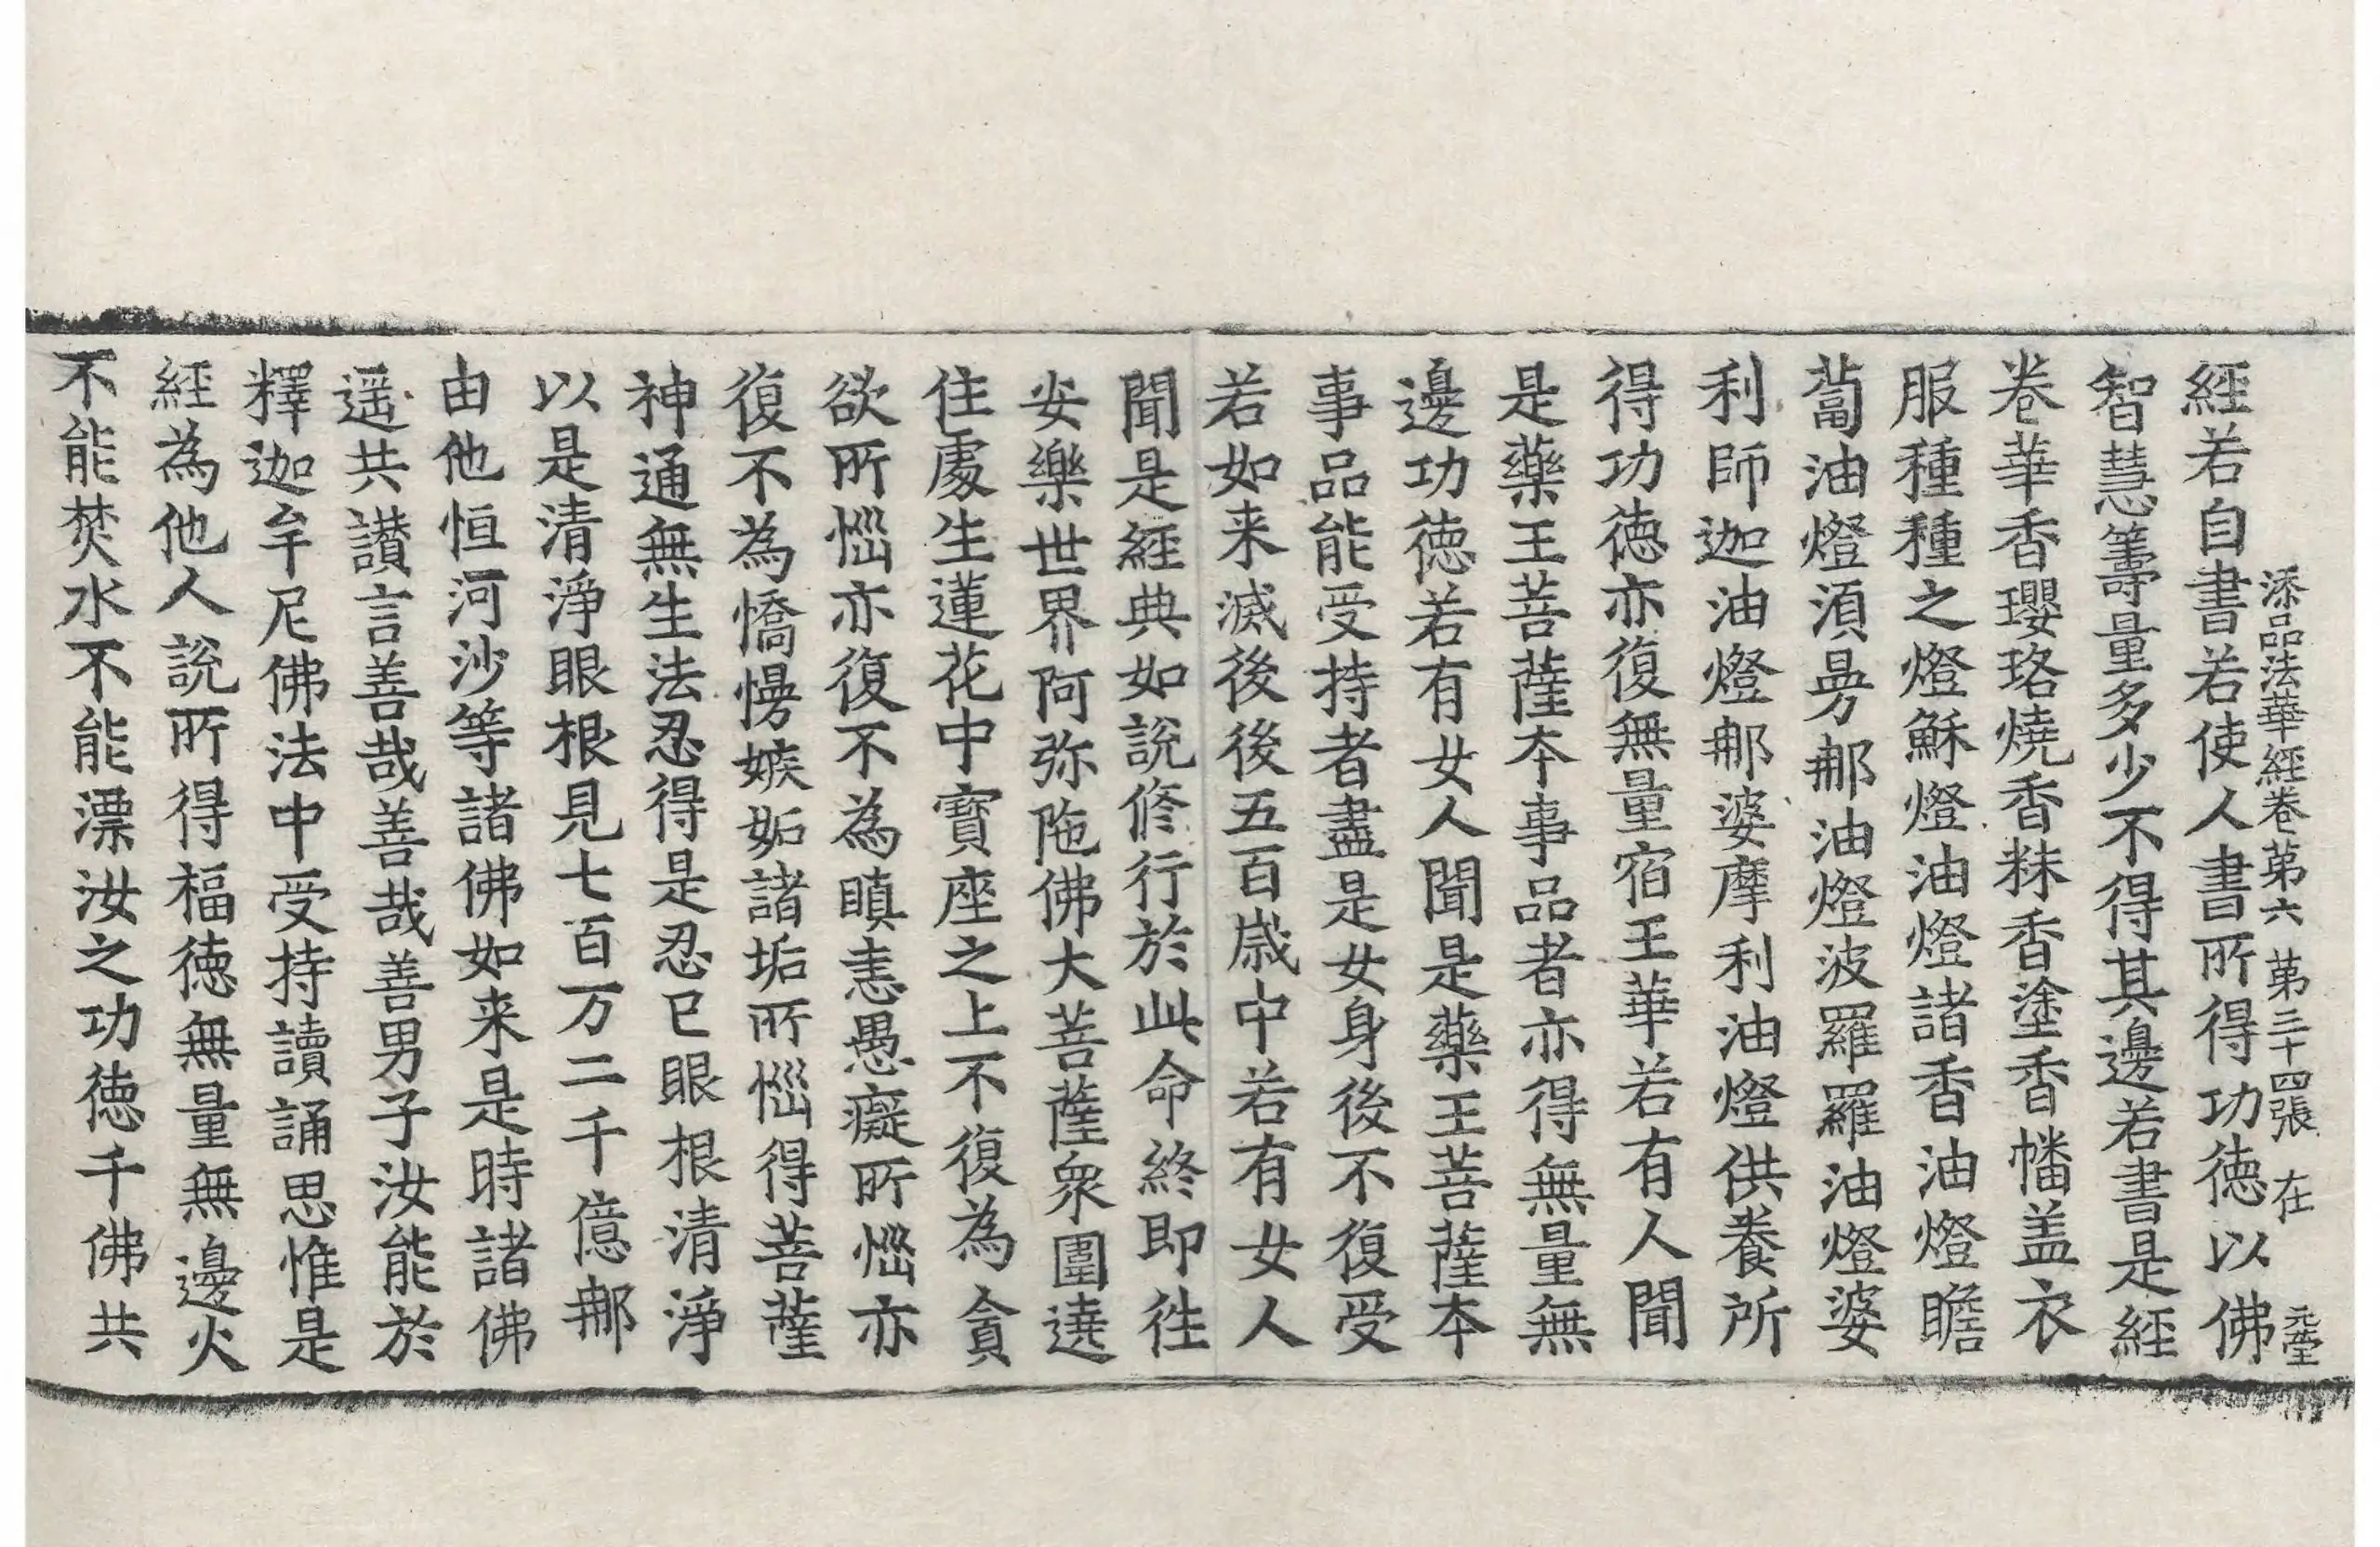 添品法華經卷第六 第三十四張 在
經若自書若使人書所得功徳以佛
智慧籌量多少不得其邊若書是經
卷華香瓔珞燒香秣香塗香幡盖衣
服種種之燈穌燈油燈諸香油燈瞻
蔔油燈湏曼那油燈波羅羅油燈婆
利師迦油燈那婆摩利油燈供養所
得功徳亦復無量宿王華若有人聞
是藥王菩薩本事品者亦得無量無
邊功徳若有女人聞是藥王菩薩本
事品能受持者盡是女身後不復受
若如来滅後後五百歳中若有女人
聞是經典如說修行於此命終即往
安樂世界阿弥陁佛大菩薩衆圍遶
住處生蓮花中寶座之上不復為貪
欲所惱亦復不為瞋恚愚癡所惱亦
復不為憍慢嫉妬諸垢所惱得菩薩
神通無生法忍得是忍已眼根清淨
以是清淨眼根見七百万二千億那
由他恒河沙等諸佛如来是時諸佛
遥共讃言善哉善哉善男子汝能於
釋迦牟尼佛法中受持讀誦思惟是
經為他人說所得福徳無量無邊火
不能焚水不能漂汝之功徳千佛共